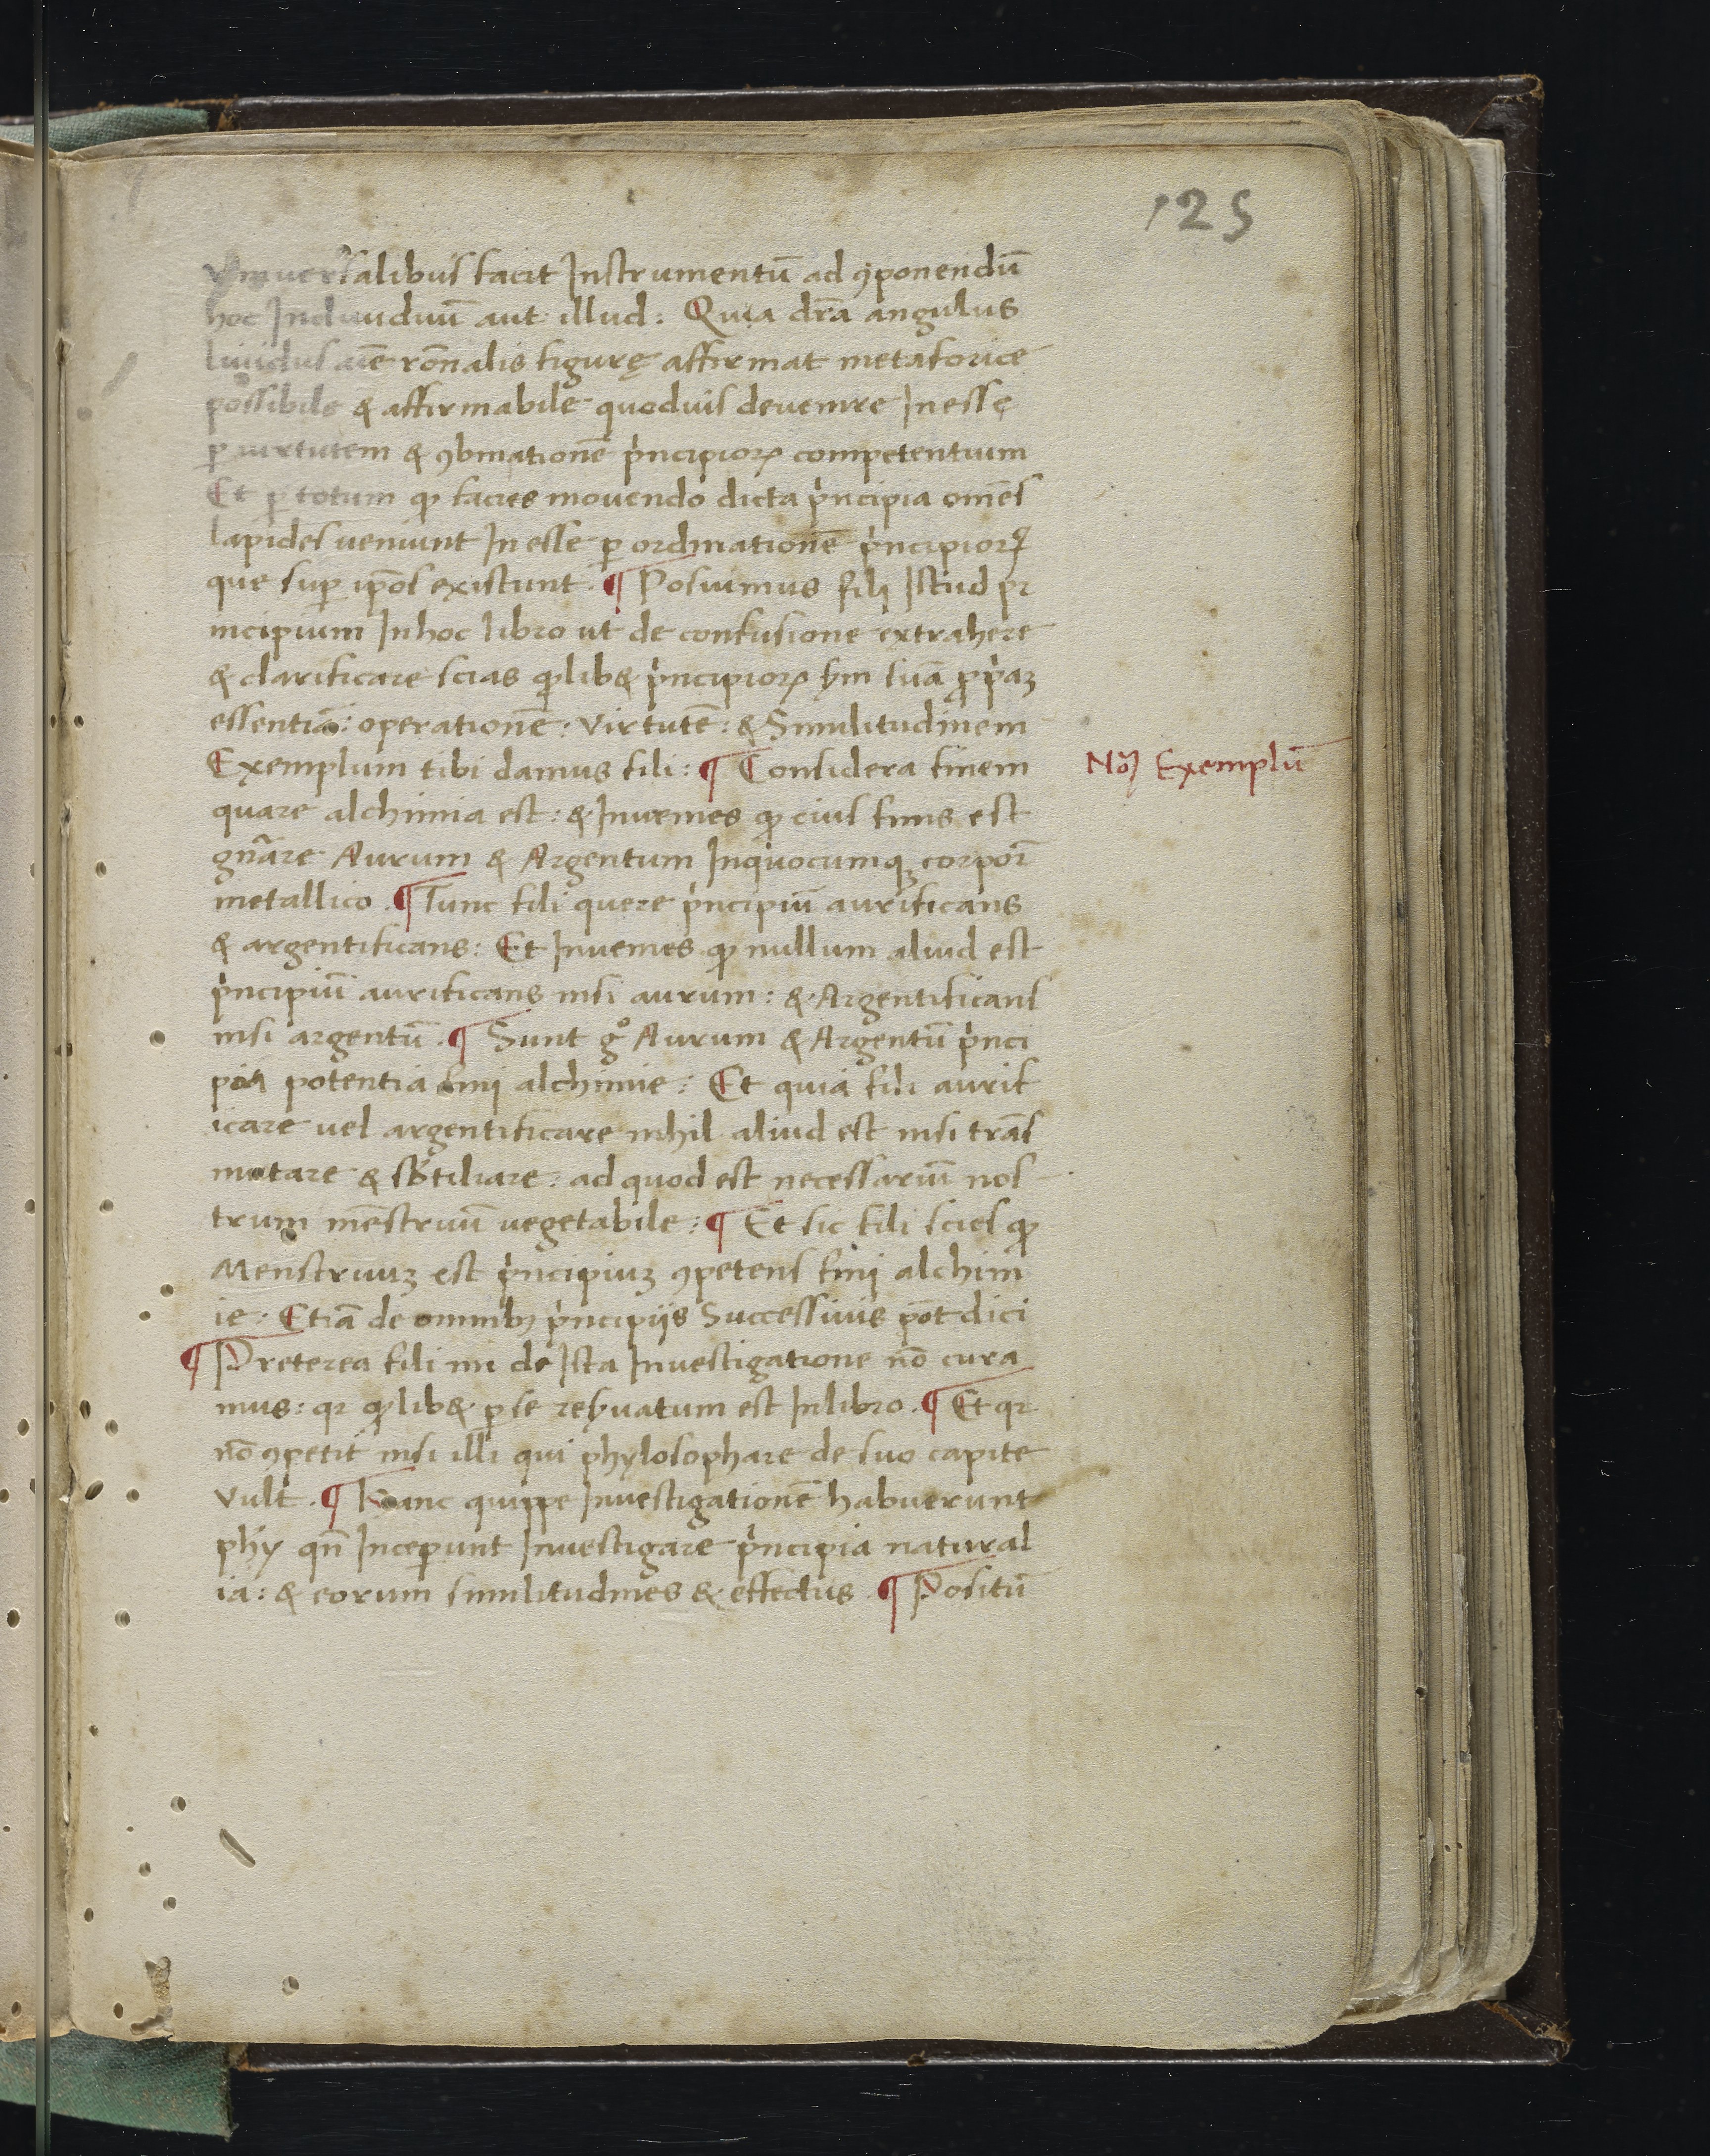 125
Vniuersalibus facit Instrumentū ad ꝯponendū
hoc Indiuiduū aut illud: Quia dr̄a angulus
liuidus aīe rōnalis figurę affirmat metaforice
possibile & affirmabile quoduis deuenire In esse
ꝑ uirtutem & ꝯbinationē pͥncipioꝝ competentium
Et ꝑ totum ꝙ facies mouendo dicta pͥncipia omēs
lapides ueniunt In esse ꝑ ordinationē pͥncipioꝝ
que suꝑ ip̄os existunt. ¶ Posuimus fili Istud pr
incipium In hoc libro ut de confusione extrahere
& clarificare scias ꝙlib& pͥncipioꝝ sᷤm suā ꝓpͥaꝫ
essentiā: operationē: virtutē: & Similitudinem
Exemplum tibi damus fili: ¶ Considera finem
Nō Exemplū
quare alchimia est: & Inuenies ꝙ eius finis est
gn̄are Aurum & Argentum In quocumqꝫ corporī
metallico. ¶ Tunc fili quere pͥncipiū aurificans
& argentificans: Et Inuenies ꝙ nullum aliud est
pͥncipiū aurificans nisi aurum: & Argentificans
nisi argentū. ¶ Sunt gͦ Aurum & Argentū pͥnci
pia potentia fini alchimie: Et quia fili aurif
icare uel argentificare nihil aliud est nisi trās
mutare & sb̄tiliare: ad quod est necessariū nos
trum mēstruū vegetabile: ¶ Et sic fili scies ꝙ
Menstruuꝫ est pͥncipiuꝫ ꝯpetens fini alchim
ie: Etiā de omnibꝫ pͥncipijs Successiuis pōt dici
¶ Preterea fili mi de Ista Inuestigatione nō cura
mus: qr ꝙlib& ꝑ se reseruatum est In libro. ¶ Et qr
nō ꝯpetit nisi illi qui phylosophare de suo capite
vult. ¶ Hanc quippe Inuestigationē habuerunt
phỹ qn̄ Inceꝑunt Inuestigare pͥncipia natural
ia: & eorum similitudines & effectus. ¶ Positū